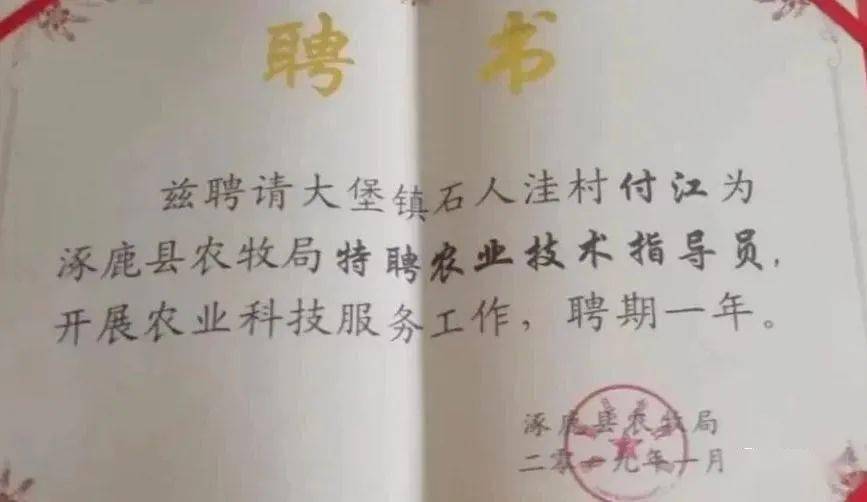 聘书
兹聘请大堡镇石人洼村付江为
涿鹿县农牧局特聘农业技术指导员,
开展农业科技服务工作，聘期一年。
涿鹿县农牧局
二零一九年一月